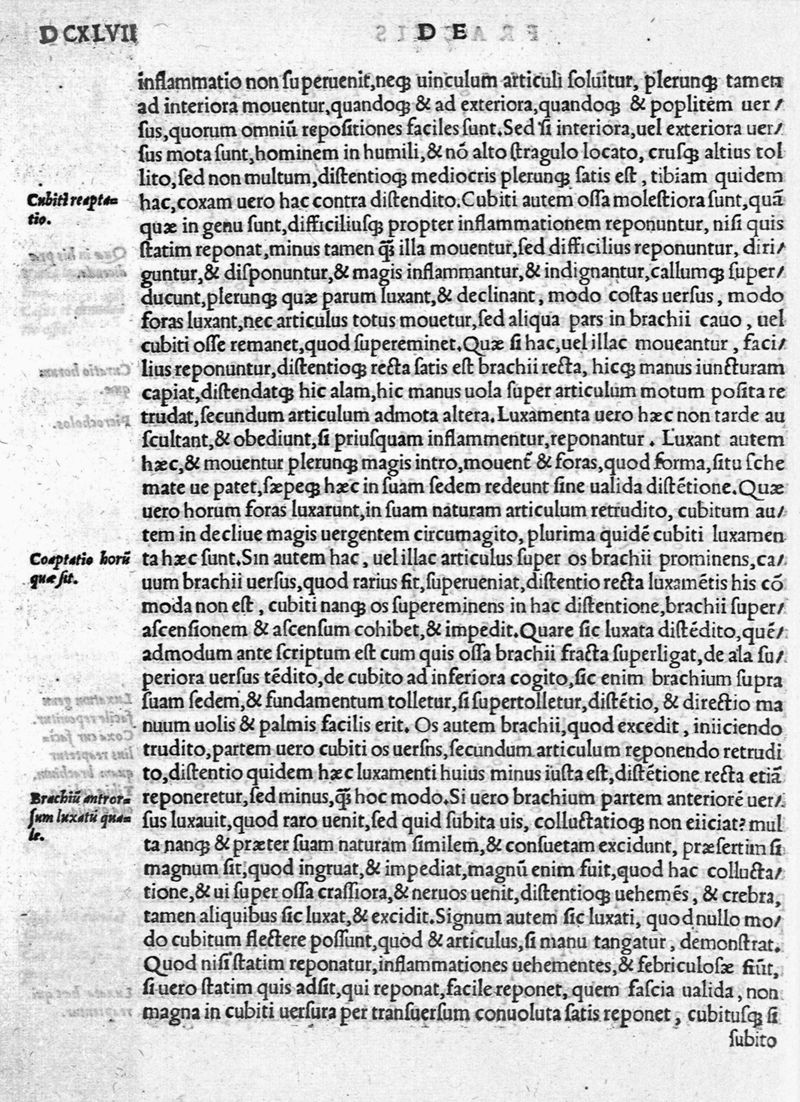 DCXLVII DE
inflammatio non superuenit,neqꝫ uinculum articuli soluitur, plerunqꝫ tamen
ad interiora mouentur,quandoqꝫ & ad exteriora,quandoqꝫ & poplitem uer/
sus,quorum omniū repositiones faciles sunt.Sed si interiora,uel exteriora uer/
sus mota sunt,hominem in humili,& nō alto stragulo locato, crusqꝫ altius tol
lito,sed non multum,distentioqꝫ mediocris plerunqꝫ satis est, tibiam quidem
Cubiti reapta-
tio.
hac,coxam uero hac contra distendito.Cubiti autem ossa molestiora sunt,quā
quæ in genu sunt,difficiliusqꝫ propter inflammationem reponuntur, nisi quis
statim reponat,minus tamen q̃ illa mouentur,sed difficilius reponuntur, diri/
guntur,& disponuntur,& magis inflammantur,& indignantur,callumqꝫ super/
ducunt,plerunqꝫ quæ parum luxant,& declinant, modo costas uersus, modo
foras luxant,nec articulus totus mouetur,sed aliqua pars in brachii cauo, uel
cubiti osse remanet,quod supereminet.Quæ si hac,uel illac moueantur, faci/
lius reponuntur,distentioqꝫ recta satis est brachii recta, hicqꝫ manus iuncturam
capiat,distendatqꝫ hic alam,hic manus uola super articulum motum posita re
trudat,secundum articulum admota altera.Luxamenta uero hæc non tarde au
scultant,& obediunt,si priusquam inflammentur,reponantur. Luxant autem
hæc,& mouentur plerunqꝫ magis intro,mouent̃ & foras,quod forma,situ sche
mate ue patet,sæpeqꝫ hæc in suam sedem redeunt sine ualida distētione.Quæ
uero horum foras luxarunt,in suam naturam articulum retrudito, cubitum au/
tem in decliue magis uergentem circumagito, plurima quidē cubiti luxamen
Coaptatio horū
quæ sit.
ta hæc sunt.Sin autem hac, uel illac articulus super os brachii prominens,ca/
uum brachii uersus,quod rarius fit,superueniat,distentio recta luxamētis his cō
moda non est, cubiti nanqꝫ os supereminens in hac distentione,brachii super/
ascensionem & ascensum cohibet,& impedit.Quare sic luxata distēdito,quē/
admodum ante scriptum est cum quis ossa brachii fracta superligat,de ala su/
periora uersus tēdito,de cubito ad inferiora cogito,sic enim brachium supra
suam sedem,& fundamentum tolletur,si supertolletur,distētio, & directio ma
nuum uolis & palmis facilis erit. Os autem brachii,quod excedit, iniiciendo
trudito,partem uero cubiti os uersns,secundum articulum reponendo retrudi
to,distentio quidem hæc luxamenti huius minus iusta est,distētione recta etiā
Brachiū antror-
sum luxatū qua-
le.
reponeretur,sed minus,q̃ hoc modo.Si uero brachium partem anteriorē uer/
sus luxauit,quod raro uenit,sed quid subita uis, colluctatioqꝫ non eiiciat? mul
ta nanqꝫ & præter suam naturam similem,& consuetam excidunt, præsertim si
magnum sit,quod ingruat,& impediat,magnū enim fuit,quod hac collucta/
tione,& ui super ossa crassiora,& neruos uenit,distentioqꝫ uehemēs, & crebra,
tamen aliquibus sic luxat,& excidit.Signum autem sic luxati, quod nullo mo/
do cubitum flectere possunt,quòd & articulus,si manu tangatur, demonstrat.
Quod nisi statim reponatur,inflammationes uehementes,& febriculosæ fiūt,
si uero statim quis adsit,qui reponat,facile reponet, quem fascia ualida, non
magna in cubiti uersura per transuersum conuoluta satis reponet, cubitusqꝫ si
subito